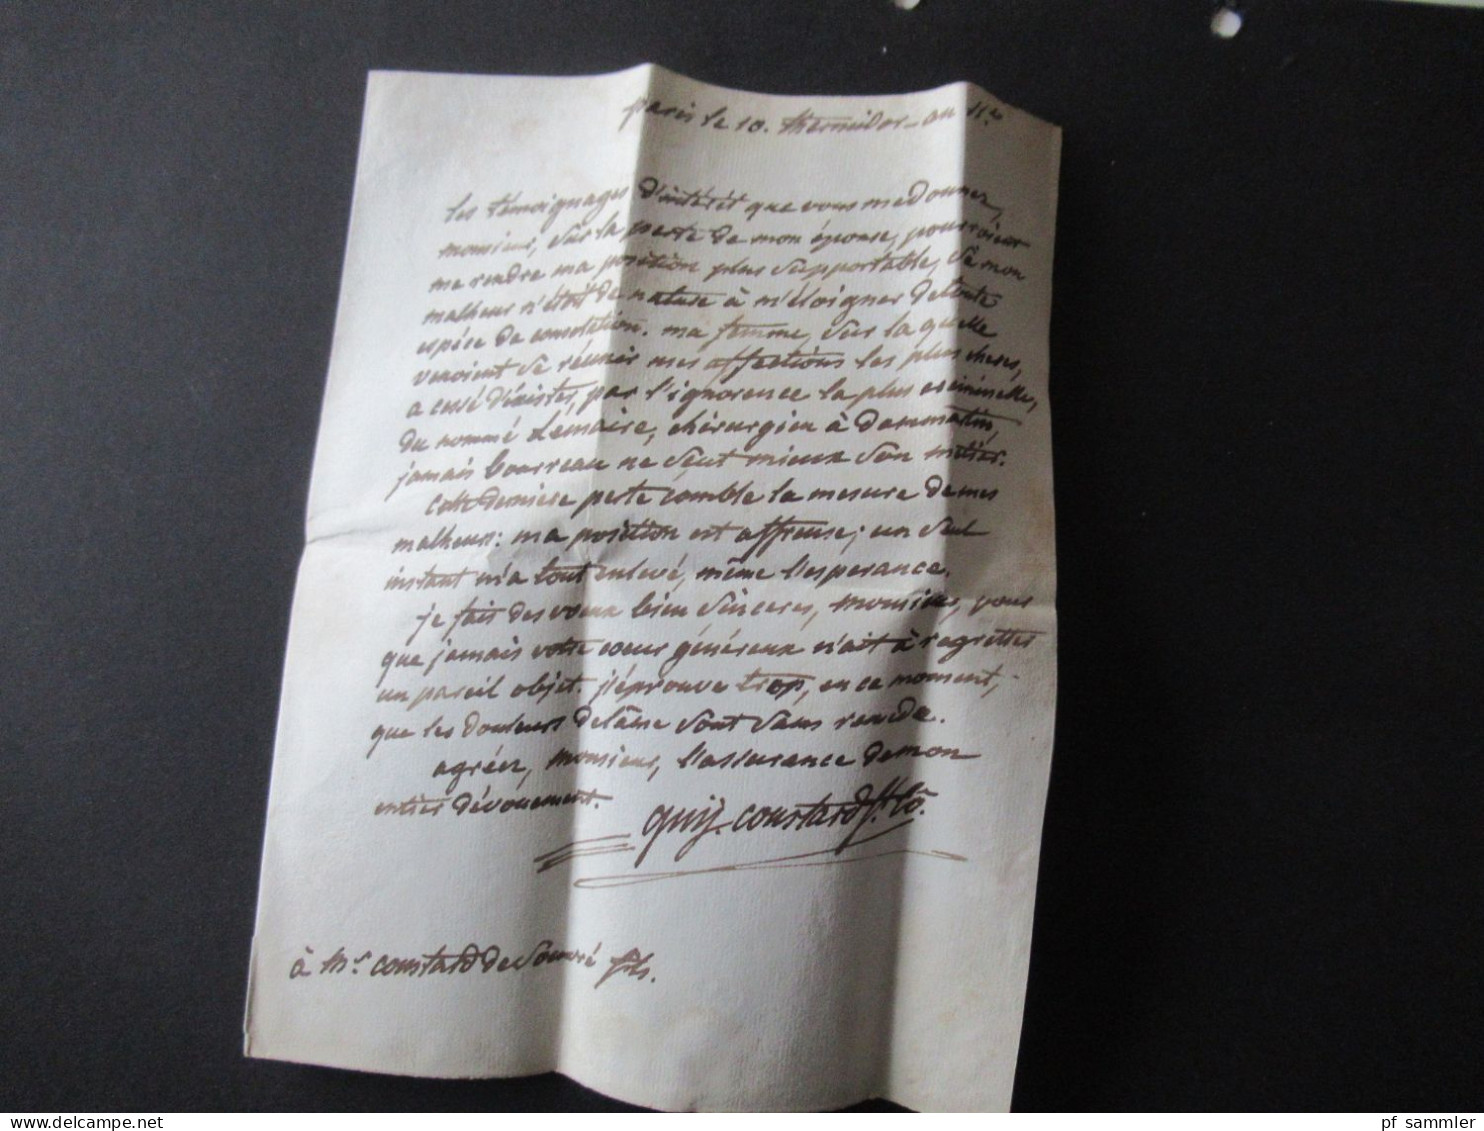 paris le 10. thermidor - an 11.e
les témoignages d'intérêt que vous me donnez,
monsieur, sur la perte de mon épouse, pourroient
me rendre ma position plus supportable, si mon
malheur n'étoit de nature à m'éloigner de toute
espéce de consolation. ma femme, sur la quelle
venoient se réunir mes affections les plus cheres,
a cessé d'éxister, par l'ignorence la plus criminelle,
du nommé Lemaire, chirurgien à dammatin,
jamais bourreau ne seut mieux son métier.
cette derniere perte comble la mesure de mes
malheurs: ma position est affreuse; un seul
instant m'a tout enlevé, même l'esperance.
je fais des voeux bien sinceres, monsieur, pour
que jamais votre coeur généreux n'ait à regretter
un pareil objet. j'éprouve trop, en ce moment,
que les douleurs de l'âme sont sans remede.
agréez, monsieur, l'assurance de mon
entier dévouement.
guij. coustard St. Lô.
à Mr. coustard de Souvré fils.
pf sammler